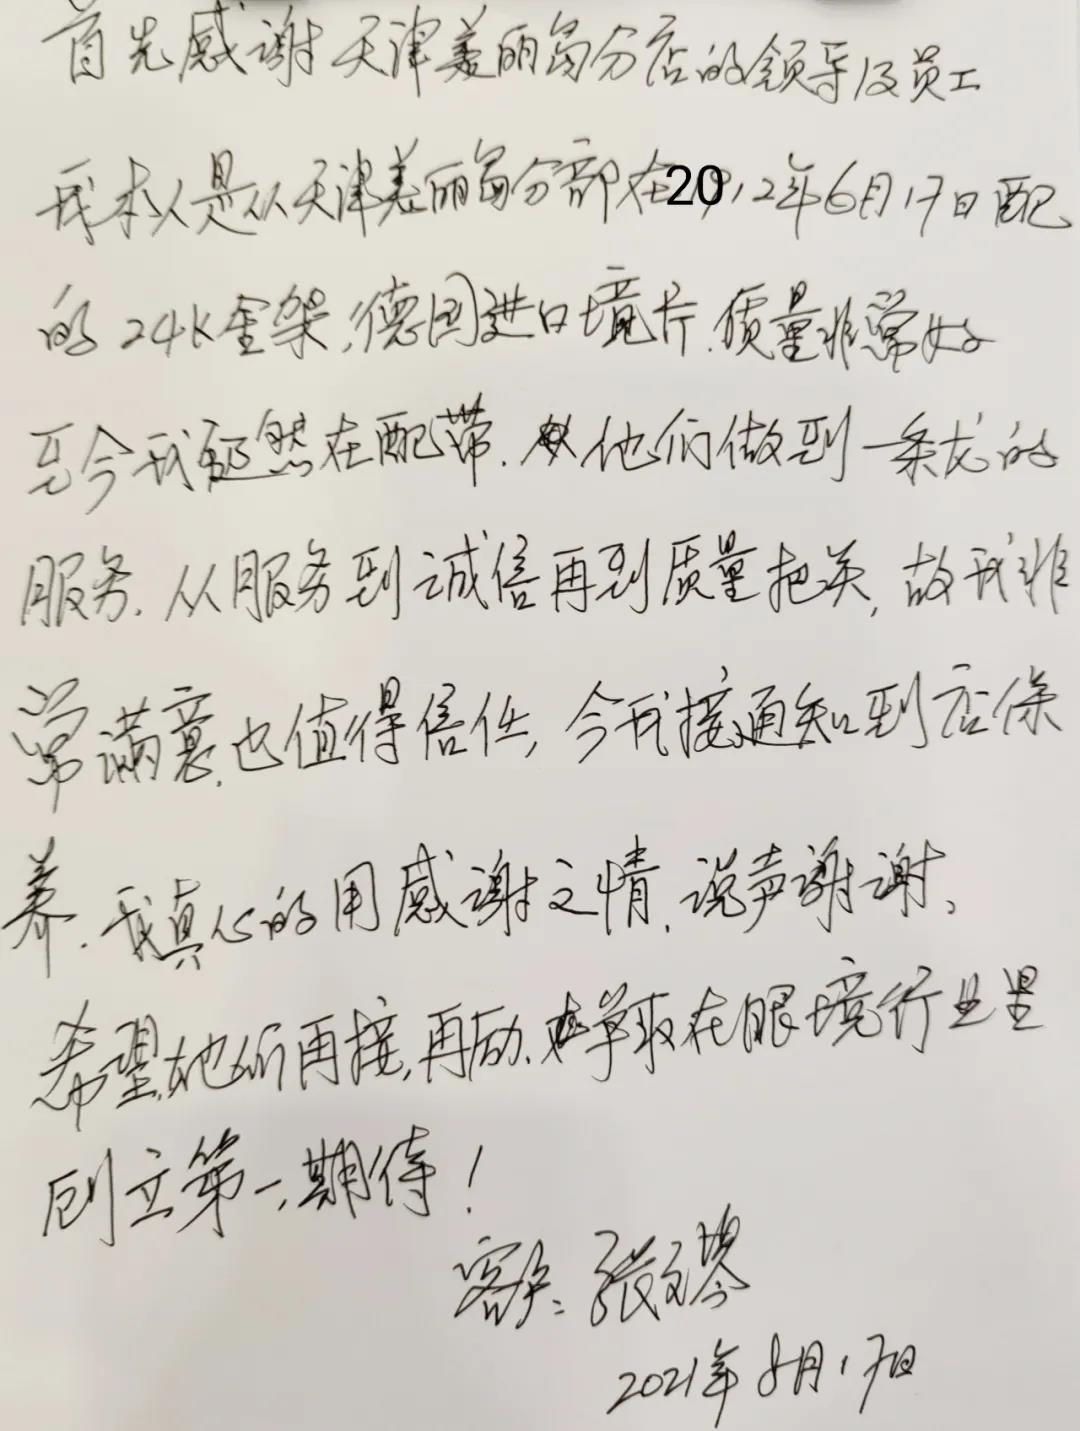 首先感谢天津美丽岛分店的领导及员工
我本人是从天津美丽岛分部在2012年6月17日配
的24K金架,德国进口境片.质量非常好
至今我依然在配带.他们做到一条龙的
服务.从服务到诚信再到质量把关,故我非
常满意,也值得信任,今我接通知到店保
养.我真心的用感谢之情,说声谢谢、
希望他们再接,再励、争取在眼境行业里
创立第一,期待!
客户:张文琴
2021年8月17日